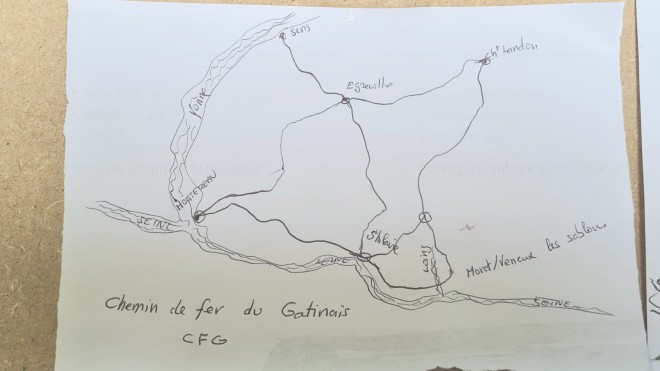 Sens
Egreville
Cht Landon
YONNE
MONTEREAU
SEINE
St Mamès
SEINE
Loing
Moret/Veneux les sablons
SEINE
Chemin de fer du Gatinais
CFG